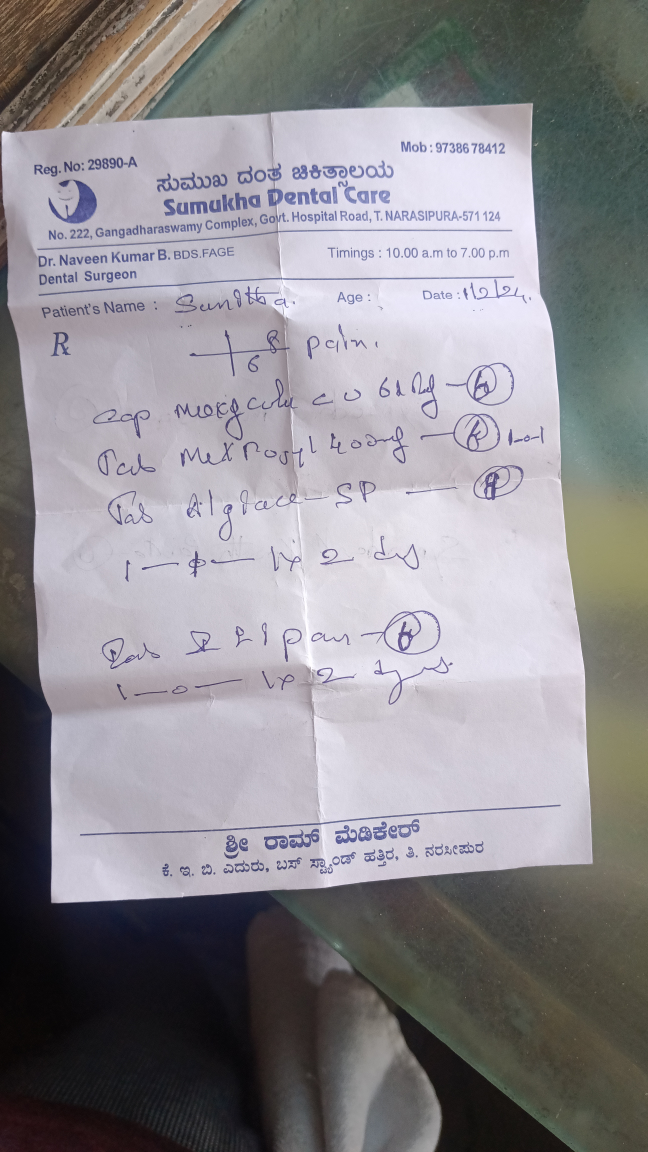 Reg. No: 29890-A
Mob : 9738678412
ಸುಮುಖ ದಂತ ಚಿಕಿತ್ಸಾಲಯ
Sumukha Dental Care
No. 222, Gangadharaswamy Complex, Govt. Hospital Road, T. NARASIPURA-571 124
Dr. Naveen Kumar B. BDS.FAGE
Dental Surgeon
Timings : 10.00 a.m to 7.00 p.m
Patient's Name : Sunitha. Age : Date : 1/2/24.
Rx
8 pain.
6
cap 
Tab 400mg 1-0-1
Tab SP
1 — 0 — 1 x 2 dys
Tab
1 — 0 — 1 x 2 dys.
ಶ್ರೀ ರಾಮ್ ಮೆಡಿಕೇರ್
ಕೆ. ಇ. ಬಿ. ಎದುರು, ಬಸ್ ಸ್ಟ್ಯಾಂಡ್ ಹತ್ತಿರ, ತಿ. ನರಸೀಪುರ